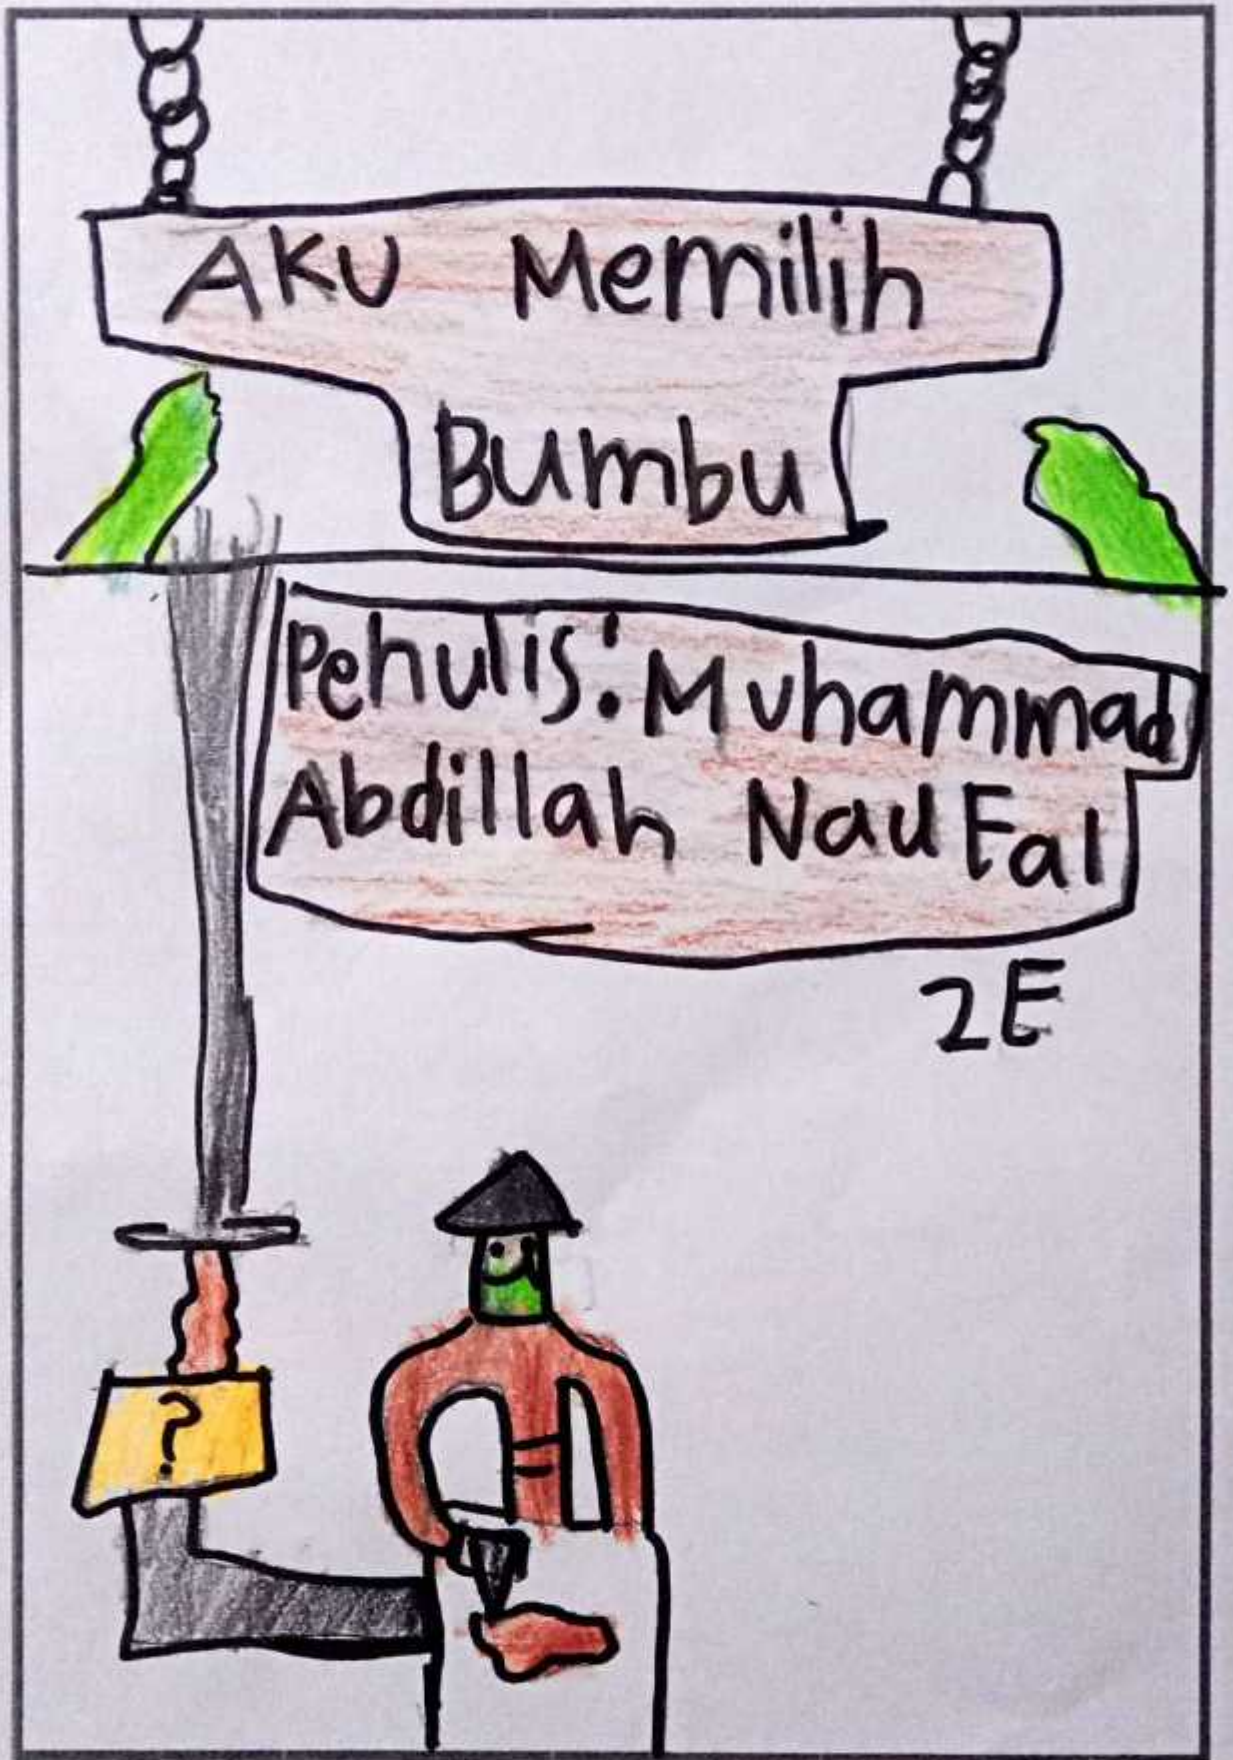 AKU Memilih
Bumbu
Penulis: Muhammad
Abdillah Naufal
2E
?